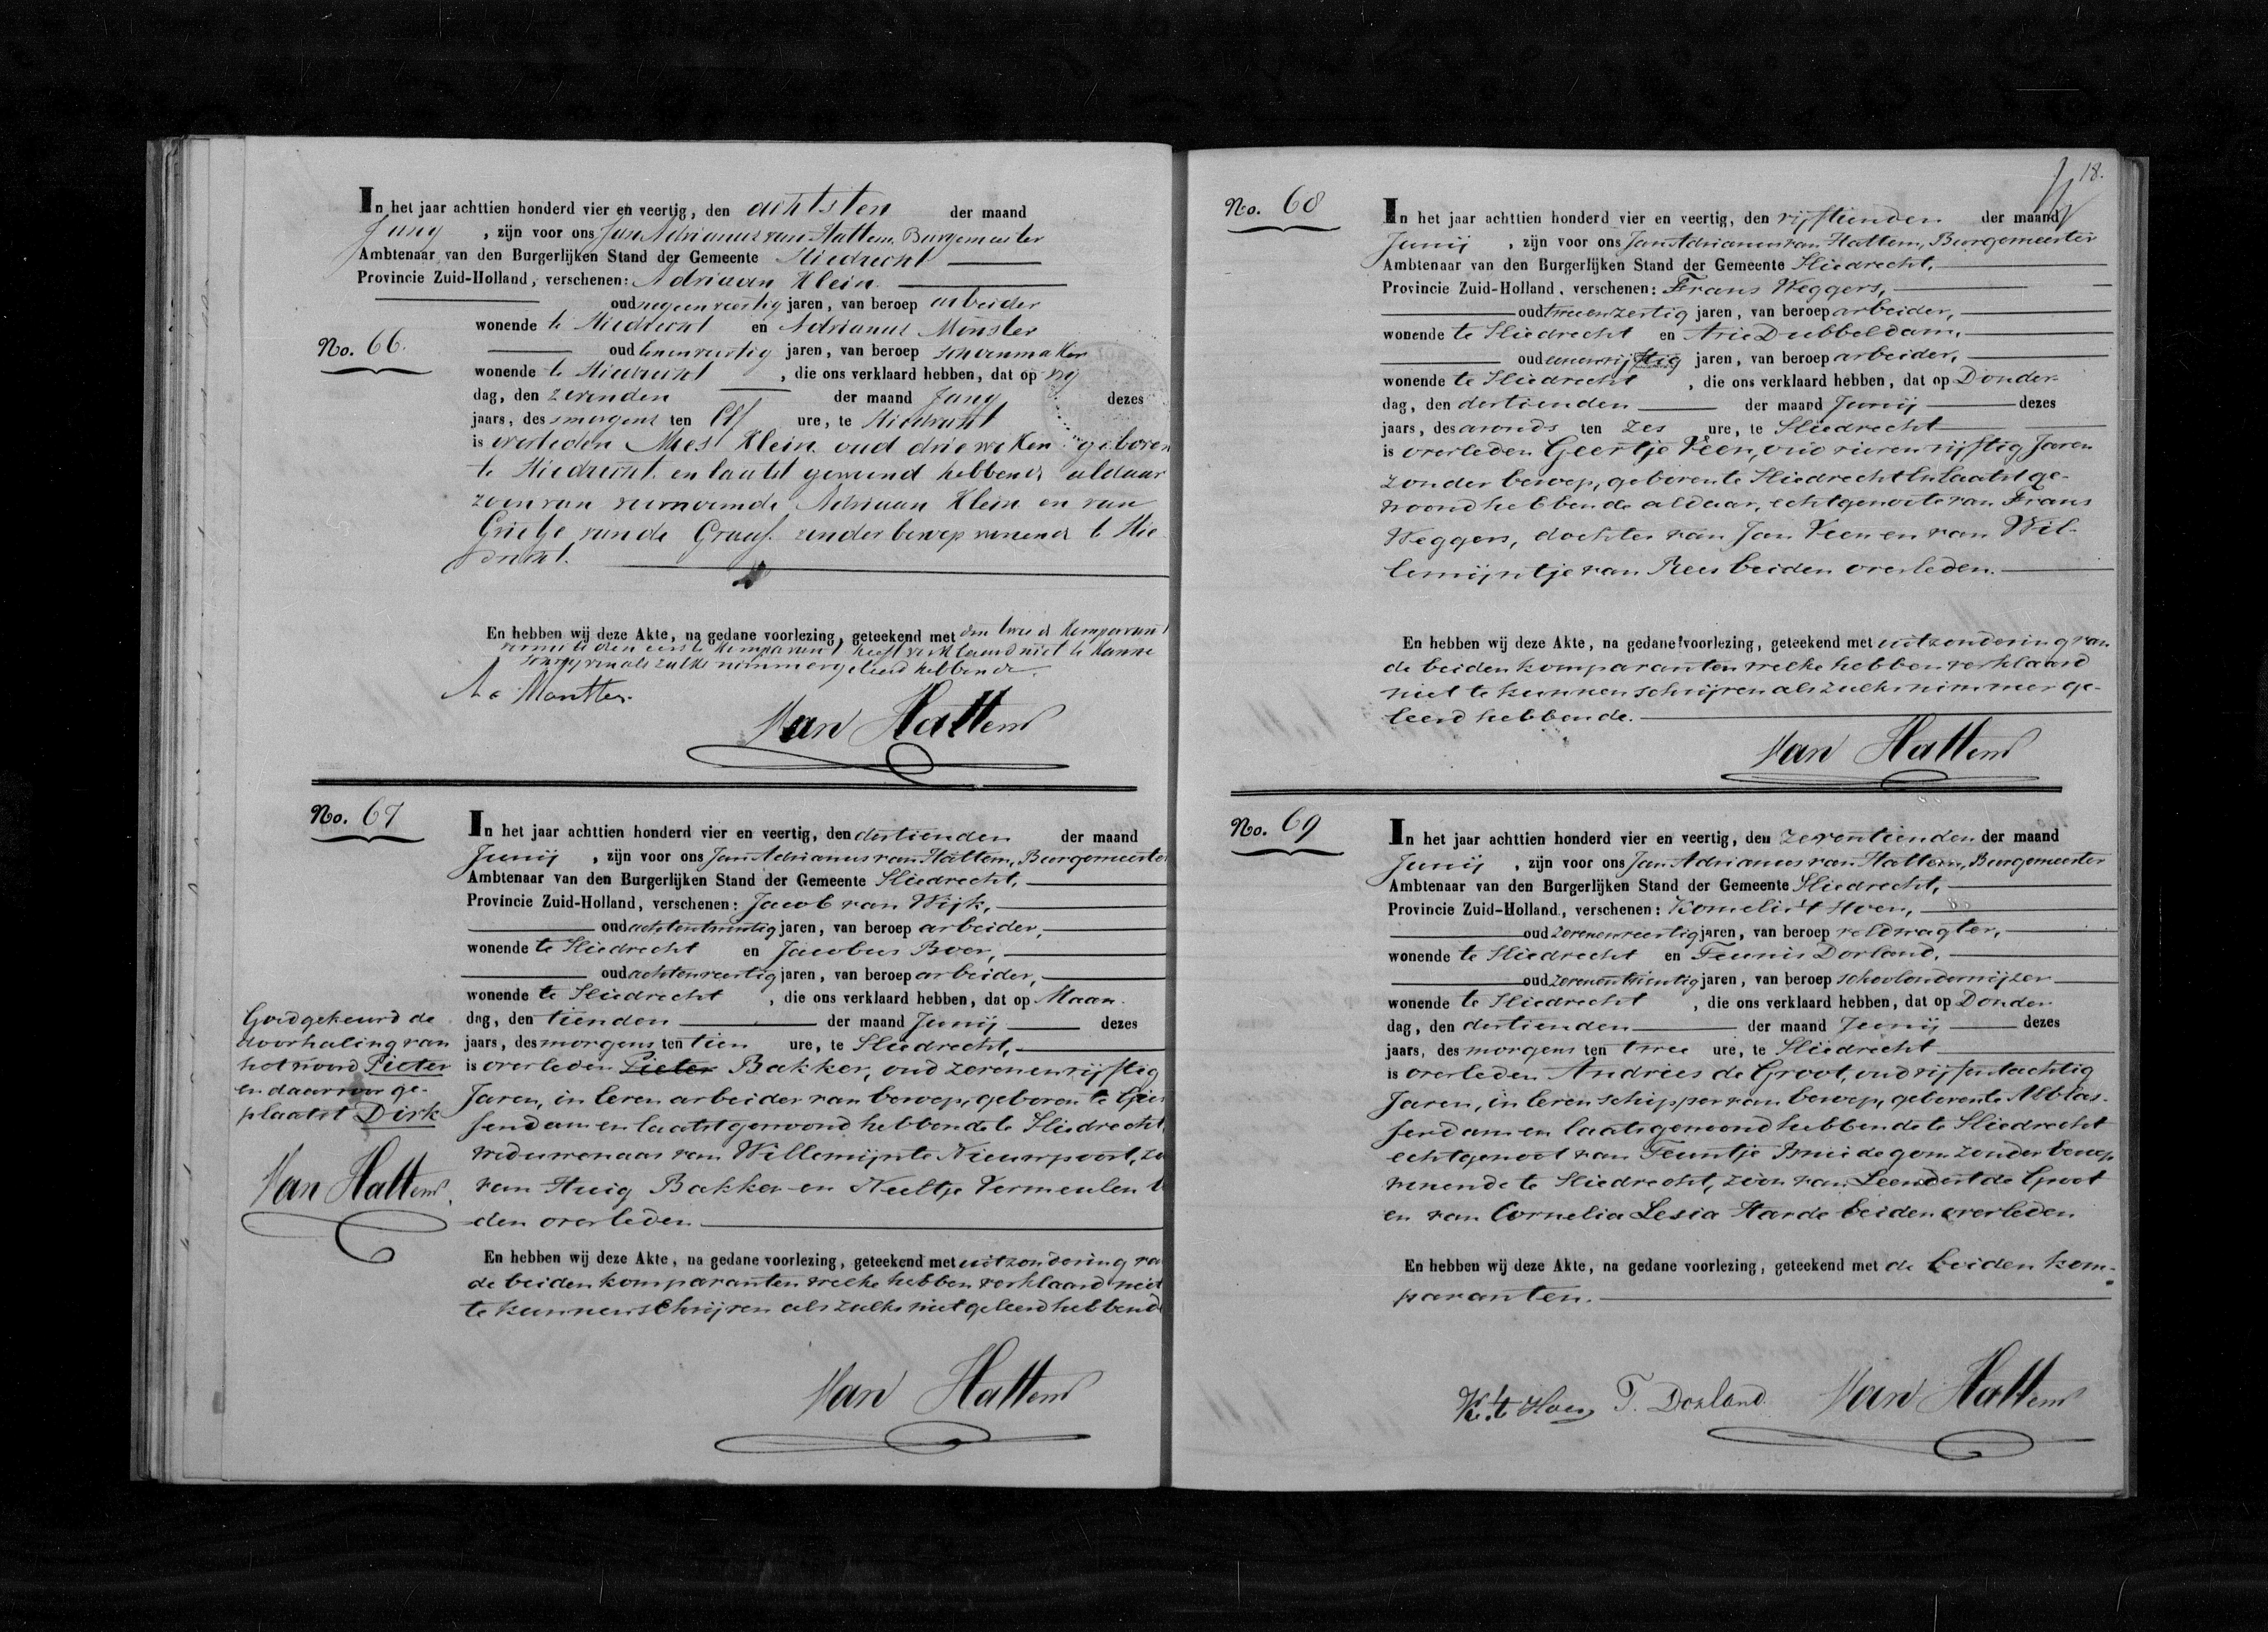 In het jaar achttien honderd vier en veertig, den achtsten der maand
Juny , zijn voor ons Jan Adrianus van Hattem, Burgemeester
Ambtenaar van den Burgerlijken Stand der Gemeente Sliedrecht
Provincie Zuid-Holland, verschenen: Adriaan Klein
oud negenveertig jaren, van beroep arbeider
wonende te Sliedrecht en Adrianus Monster
No. 66.
oud jaren, van beroep schoenmaker
wonende te Sliedrecht , die ons verklaard hebben, dat op vry
dag, den zevenden der maand Juny dezes
jaars, des smorgens ten Elf ure, te Sliedrecht
is overleden Mees Klein oud drie weken geboren
te Sliedrecht en laatst gewoond hebbende aldaar
zoon van voornoemde Adriaan Klein en van
Grietje van de Graaf zonder beroep wonende te Slie
drecht.
En hebben wij deze Akte, na gedane voorlezing, geteekend met den tweede komparant
eerste komparant heeft verklaard niet te kunne
schryven als zulks nimmer geleerd hebbende.
Van Hattem
No. 67
In het jaar achttien honderd vier en veertig, den dertienden der maand
Junij , zijn voor ons Jan Adrianus van Hattem, Burgemeeste
Ambtenaar van den Burgerlijken Stand der Gemeente Sliedrecht,
Provincie Zuid-Holland, verschenen: Jacob van Wijk,
oud achtentwintig jaren, van beroep arbeider,
wonende te Sliedrecht en Jacobus Boer,
oud achtenveertig jaren, van beroep arbeider,
wonende te Sliedrecht , die ons verklaard hebben, dat op Maan-
dag, den tienden der maand Junij dezes
jaars, des morgens ten tien ure, te Sliedrecht,
is overleden Pieter Bakker, oud zevenenvijftig
Jaren, in leven arbeider van beroep, geboren te Gies
sendam en laatst gewoond hebbende te Sliedrecht
weduwenaar van Willemijnte Nieuwpoort, zo
van Huig Bakker en Neeltje Vermeulen b
den overleden
Goedgekeurd de
doorhaling van
het woord Pieter
en daarvoor ge-
plaatst Dirk
Van Hattem
En hebben wij deze Akte, na gedane voorlezing, geteekend met uitzondering va
de beiden komparanten welke hebben verklaard niet
te kunnen schrijven als zulks niet geleerd hebbende
Van Hattem
18.
No. 68
In het jaar achttien honderd vier en veertig, den vijftienden der maand
Junij , zijn voor ons Jan Adrianus van Hattem, Burgemeester
Ambtenaar van den Burgerlijken Stand der Gemeente Sliedrecht,
Provincie Zuid-Holland, verschenen: Frans Weggers,
oud tweenzestig jaren, van beroep arbeider,
wonende te Sliedrecht en Arie Dubbeldam,
oud eenenvijftig jaren, van beroep arbeider,
wonende te Sliedrecht , die ons verklaard hebben, dat op Donder-
dag, den dertienden der maand Junij dezes
jaars, des avonds ten zes ure, te Sliedrecht
is overleden Geertje Veen, oud vierenvijftig Jaren
zonder beroep, geboren te Sliedrecht en laatst ge-
woond hebbende aldaar, echtgenoote van Frans
Weggers, dochter van Jan Veen en van Wil-
lemijntje van Rees beiden overleden.
En hebben wij deze Akte, na gedane voorlezing, geteekend met uitzondering van
de beiden komparanten welke hebben verklaard
niet te kunnen schrijven als zulks nimmer ge-
leerd hebbende.
Van Hattem
No. 69
In het jaar achttien honderd vier en veertig, den zeventienden der maand
Junij , zijn voor ons Jan Adrianus van Hattem, Burgemeester
Ambtenaar van den Burgerlijken Stand der Gemeente Sliedrecht,
Provincie Zuid-Holland, verschenen: Kornelis 't Hoen,
oud zevenenveertig jaren, van beroep veldwagter,
wonende te Sliedrecht en Teunis Dorland,
oud zevenentwintig jaren, van beroep schoolonderwijzer
wonende te Sliedrecht , die ons verklaard hebben, dat op Donder-
dag, den dertienden der maand Junij dezes
jaars, des morgens ten twee ure, te Sliedrecht
is overleden Andries de Groot, oud vijfentachtig
Jaren, in leven schipper van beroep, geboren te Alblas-
serdam en laatst gewoond hebbende te Sliedrecht
echtgenoot van Teuntje Bruidegom zonder beroep
wonende te Sliedrecht, zoon van Leendert de Groot
en van Cornelia Lesia Harde beiden overleden
En hebben wij deze Akte, na gedane voorlezing, geteekend met de beiden kom-
paranten.
K. 't Hoen T. Dorland. Van Hattem